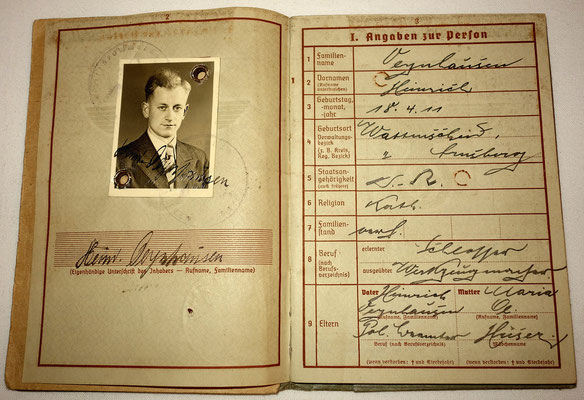 2
Heinr.
(Eigenhändige Unterschrift des Inhabers — Rufname, Familienname)
3
I. Angaben zur Person
1
1 Familien-
name
2 Vornamen
(Rufname
unterstreichen)
Heinrich
3 Geburtstag,
-monat,
-jahr
18.4.11
4 Geburtsort
Verwaltungs-
bezirk
(z. B. Kreis,
Reg. Bezirk)
Wattenscheid,
Arnsberg
5 Staatsan-
gehörigkeit
(auch frühere)
D.-R.
6 Religion
kath.
7 Familien-
stand
verh.
8 Beruf
(nach
Berufs-
verzeichnis)
erlernter
Schlosser
ausgeübter
Werkzeugmacher
9 Eltern
Vater
Heinrich
(Rufname, Familienname)
Pol. Beamter
Beruf (nach Berufsverzeichnis)
(wenn verstorben: † und Sterbejahr)
Mutter
Maria
(Rufname, Familienname)
Hüser
Mädchenname
(wenn verstorben: † und Sterbejahr)